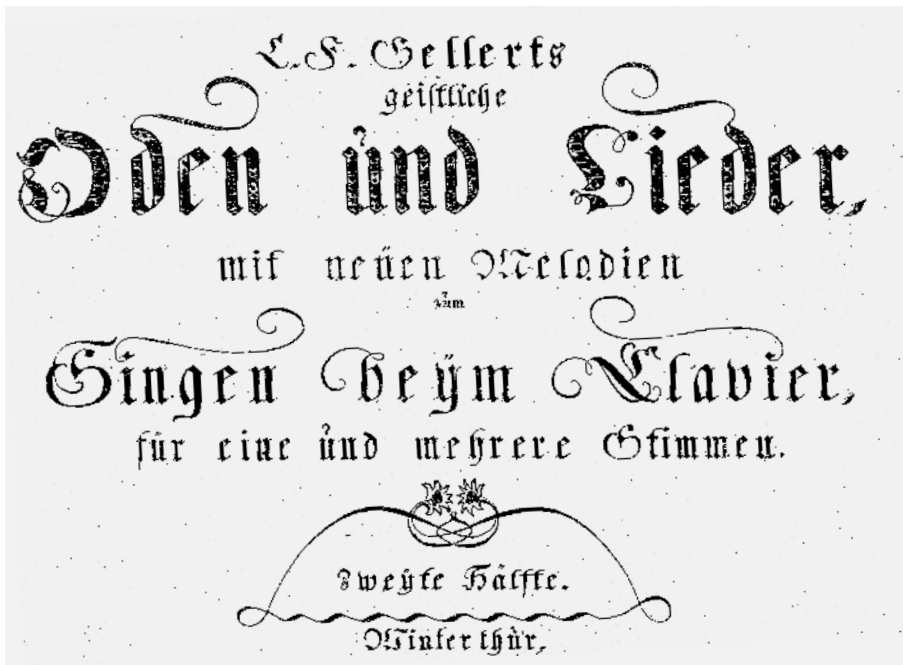 C. F. Gellerts
geistliche
Oden und Lieder,
mit neuen Melodien
zum
Singen beÿm Clavier,
für eine und mehrere Stimmen.
Zweÿte Hälfte.
Winterthur,